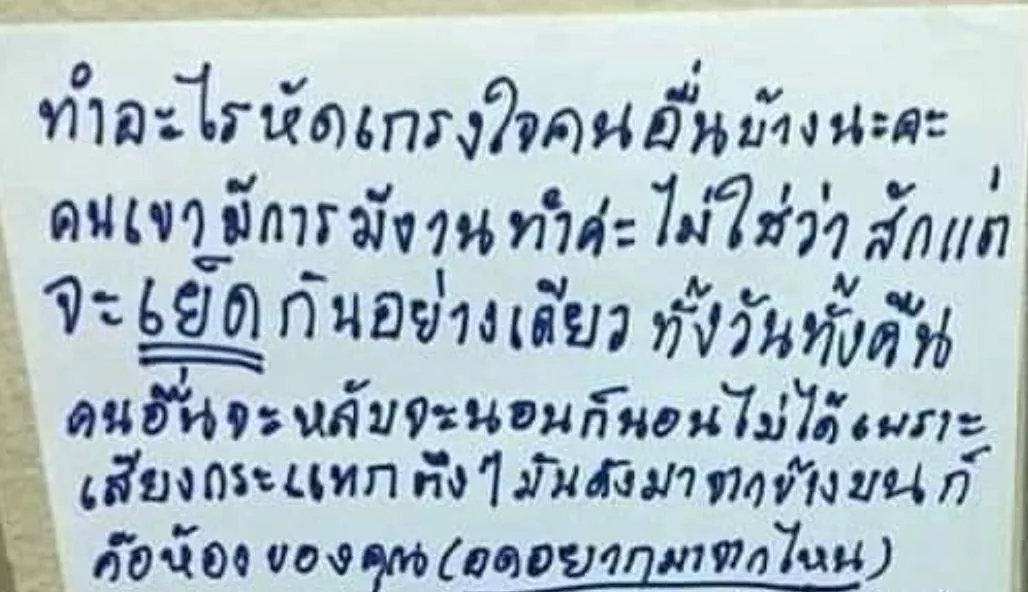 ทำอะไรหัดเกรงใจคนอื่นบ้างนะคะ
คนเขามีการมีงานทำค่ะไม่ใช่ว่าสักแต่
จะเย็ดกันอย่างเดียวทั้งวันทั้งคืน
คนอื่นจะหลับจะนอนก็นอนไม่ได้เพราะ
เสียงกระแทกตึงๆมันดังมาจากข้างบนก็
คือห้องของคุณ(อดอยากมาจากไหน)